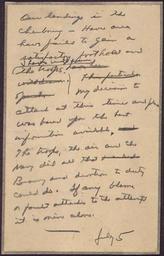 Our landings in the
Cherbourg – Havre area
have failed to gain a
satisfactory foothold and
the troops
My decision to
attack at this time and place
was based upon the best
information available,
The troops, the air and the
Navy did all that
Bravery and devotion to duty
could do. If any blame
or fault attaches to the attempt
it is mine alone.
July 5